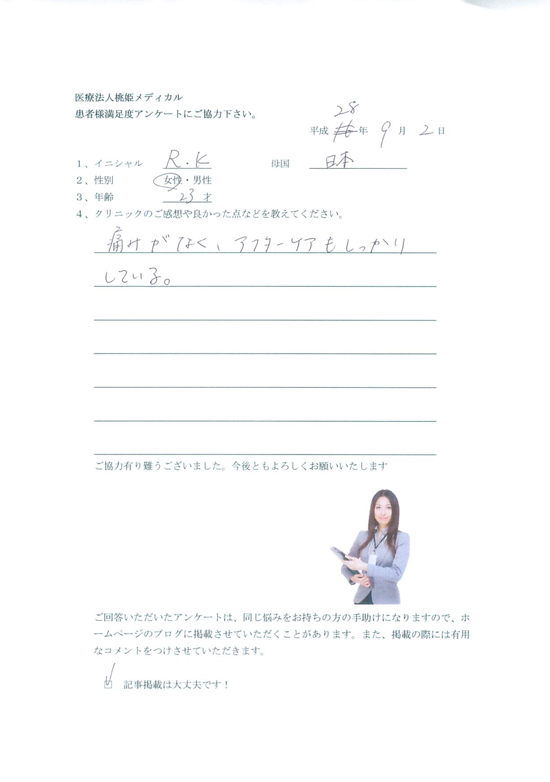 医療法人桃姫メディカル
患者様満足度アンケートにご協力下さい。
28
平成 16 年 9 月 2 日
1、イニシャル R.K 母国 日本
2、性別 女性・男性
3、年齢 23 才
4、クリニックのご感想や良かった点などを教えてください。
痛みがなく、アフターケアもしっかり
している。
ご協力有り難うございました。今後ともよろしくお願いいたします
ご回答いただいたアンケートは、同じ悩みをお持ちの方の手助けになりますので、ホ
ームページのブログに掲載させていただくことがあります。また、掲載の際には有用
なコメントをつけさせていただきます。
☑ 記事掲載は大丈夫です！